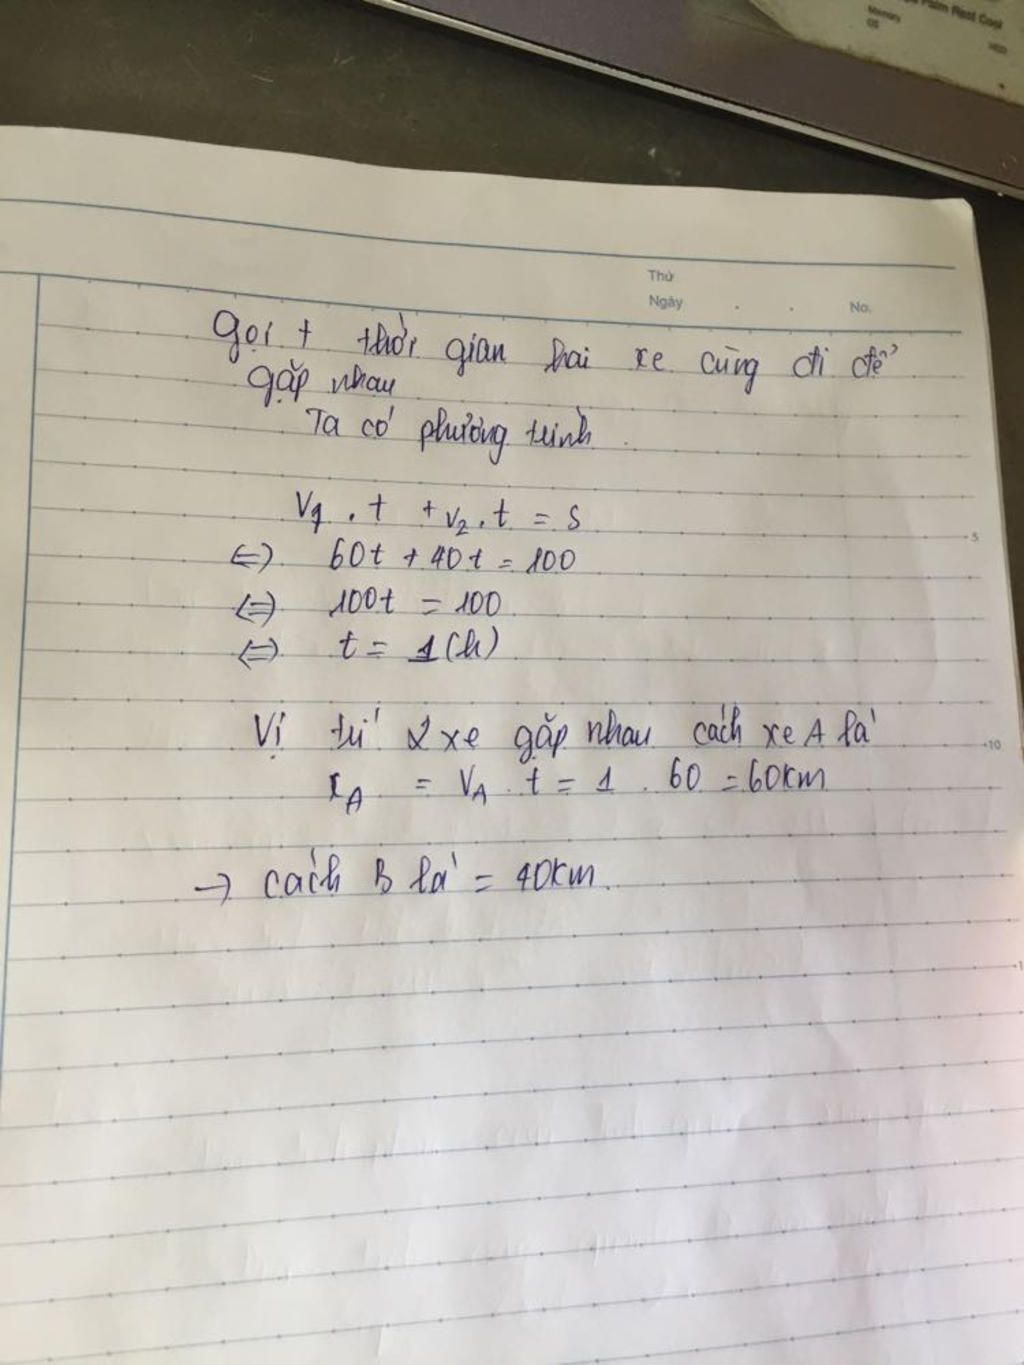 Palm Rest Cool
Memory
OS
HDD
Thứ
Ngày . . No.
Gọi t thời gian hai xe cùng đi để
gặp nhau
Ta có phương trình
V1 . t + V2 . t = S
5
<=> 60t + 40t = 100
<=> 100t = 100
<=> t = 1(h)
Vị trí 2 xe gặp nhau cách xe A là
10
xA = VA . t = 1 . 60 = 60km
→ cách B là = 40km.